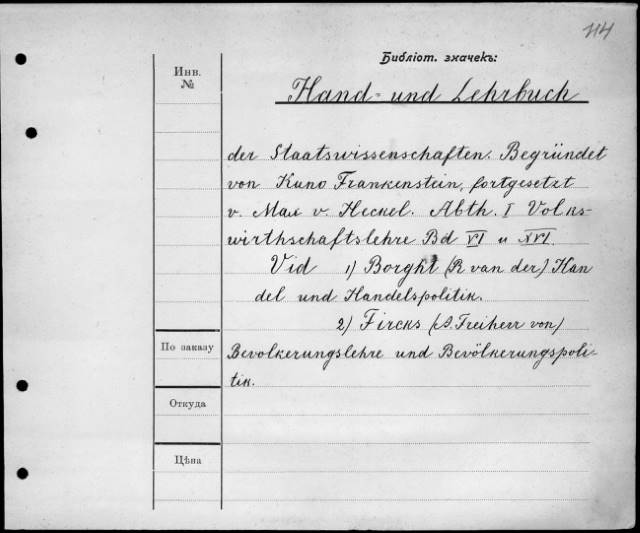 114
Библіот. значекъ:
Инв.
№
Hand- und Lehrbuch
der Staatswissenschaften. Begründet
von Kuno Frankenstein, fortgesetzt
v. Max v. Heckel. Abth. I Volks-
wirthschaftslehre Bd VI u XVI.
Vid 1) Borght (R van der) Han
del und Handelspolitik.
2) Fircks (A. Freiherr von)
По заказу
Bevolkerungslehre und Bevölkerungspoli-
tik.
Откуда
Цѣна